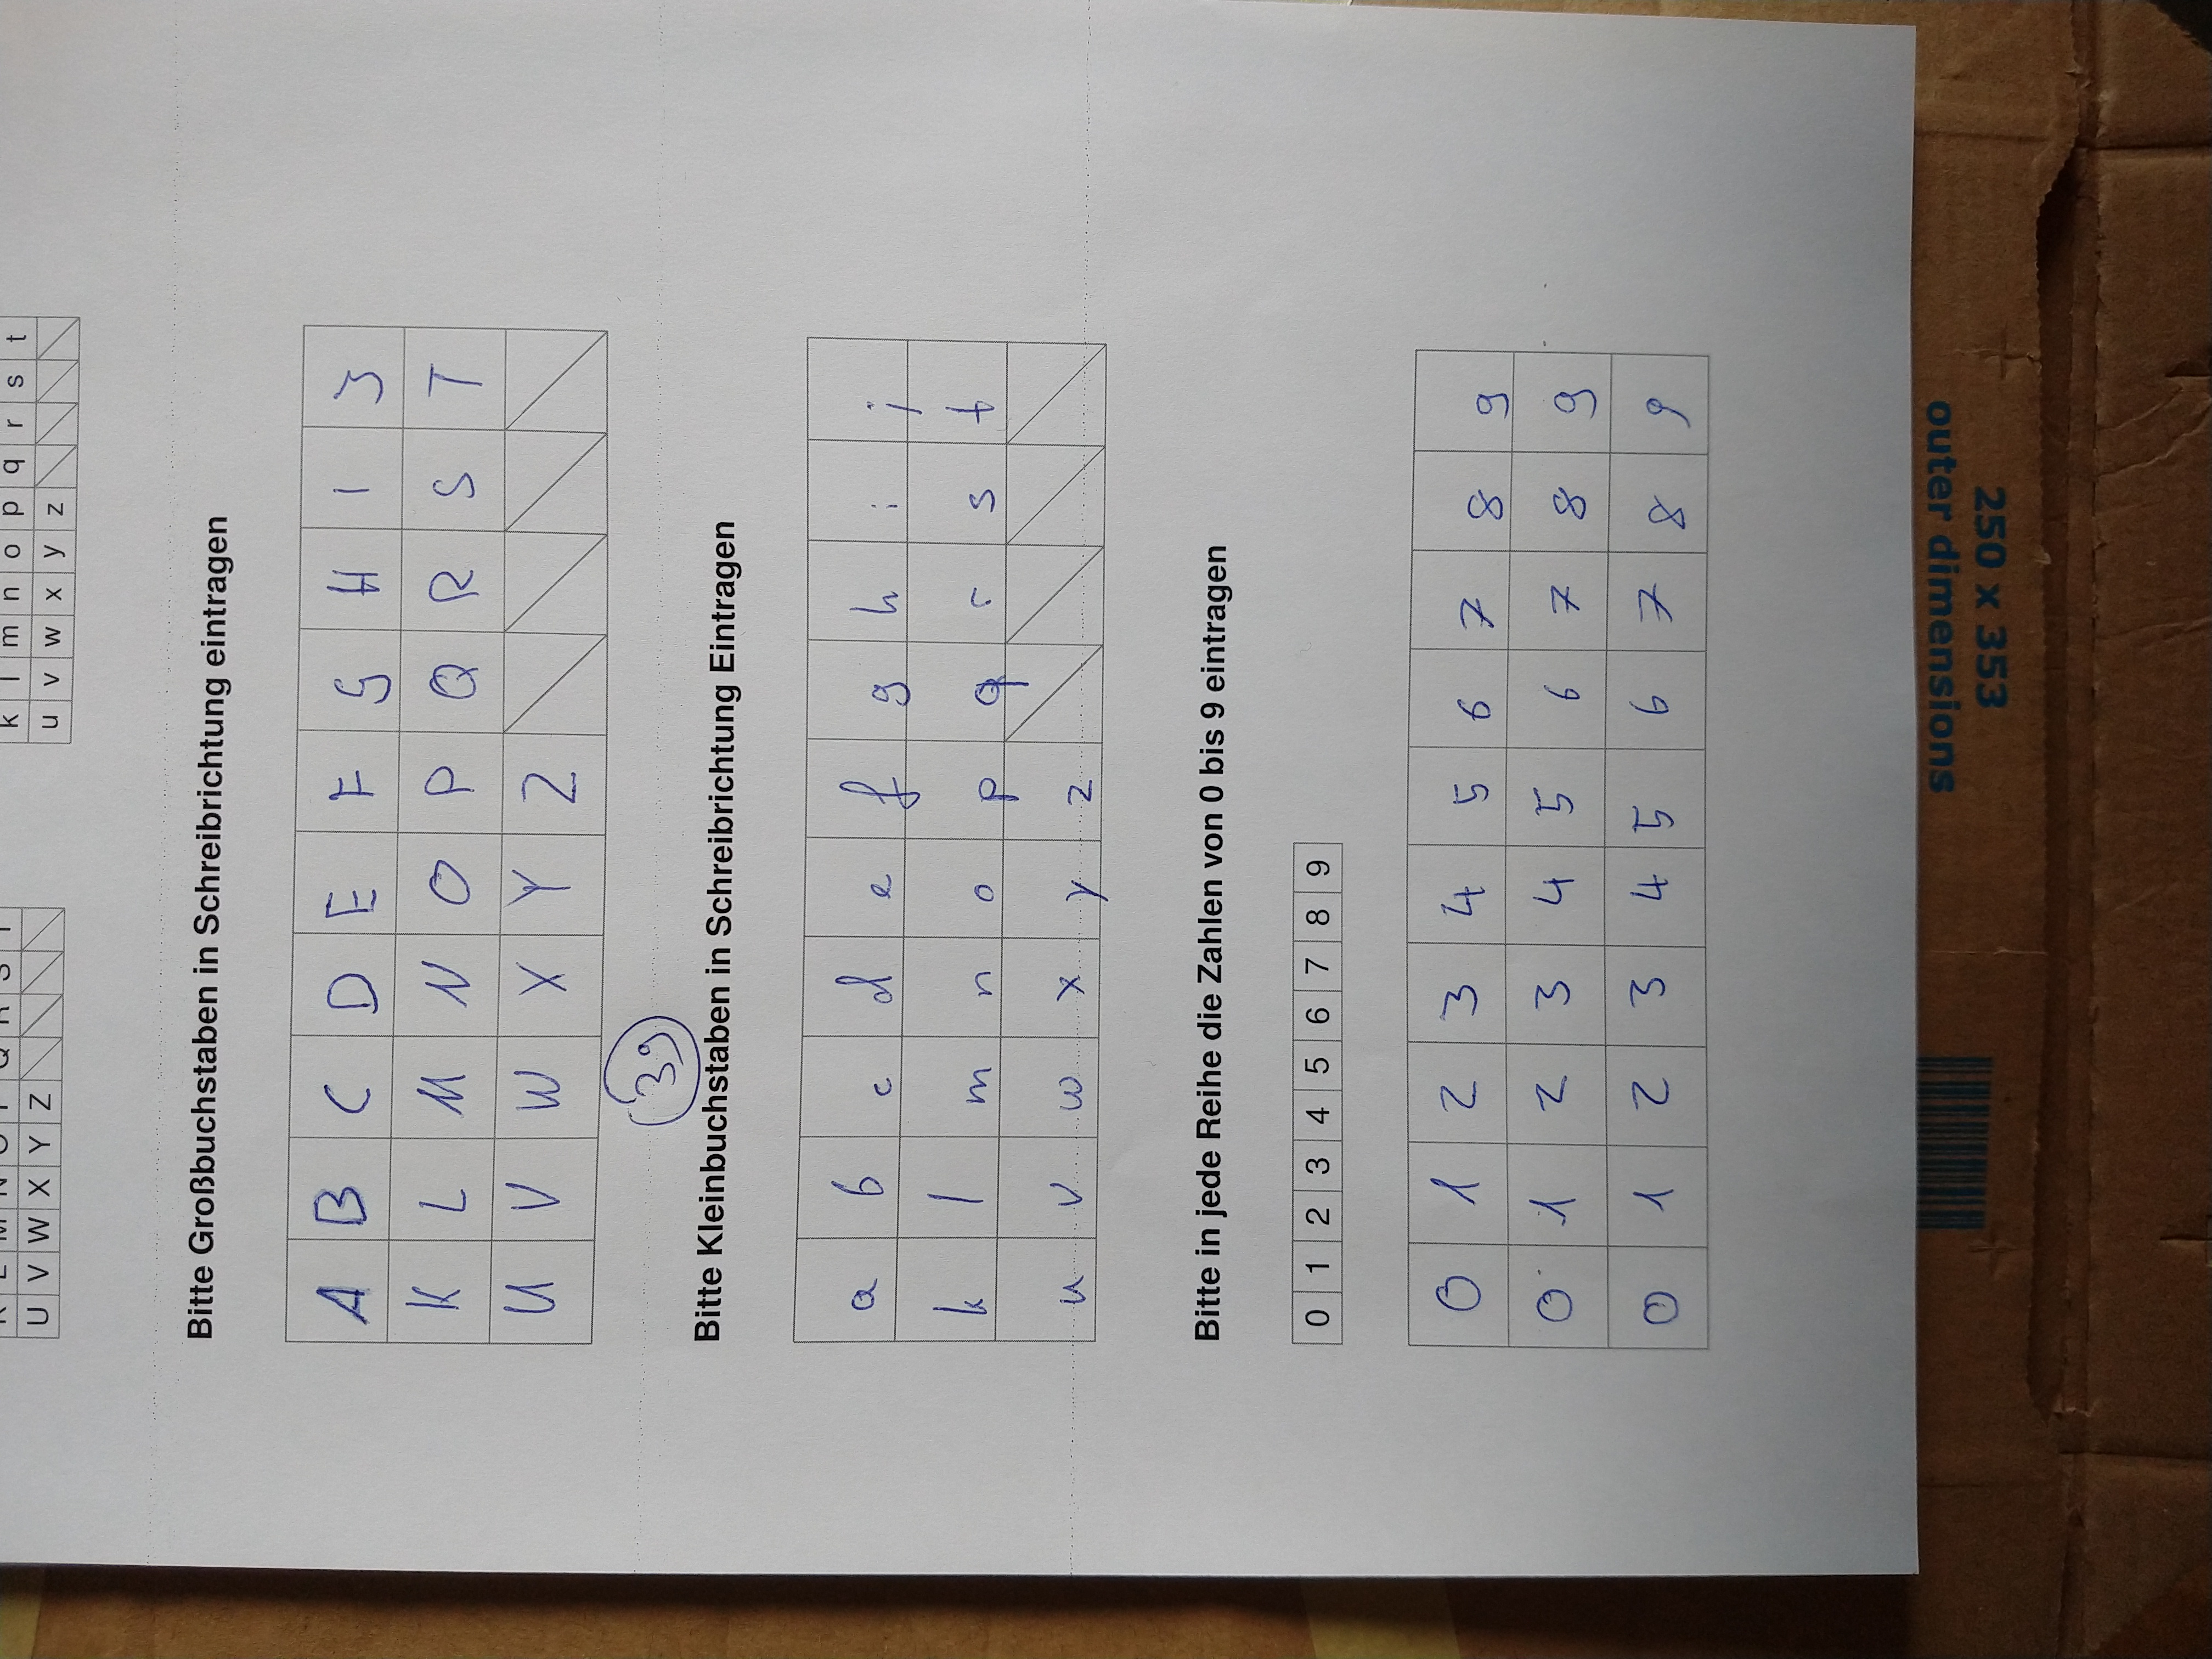 K L M N O P Q R S T
k l m n o p q r s t
U V W X Y Z
u v w x y z
Bitte Großbuchstaben in Schreibrichtung eintragen
A B C D E F G H I J
K L M N O P Q R S T
U V W X Y Z
39
Bitte Kleinbuchstaben in Schreibrichtung Eintragen
a b c d e f g h i j
k l m n o p q r s t
u v w x y z
Bitte in jede Reihe die Zahlen von 0 bis 9 eintragen
0 1 2 3 4 5 6 7 8 9
0 1 2 3 4 5 6 7 8 9
0 1 2 3 4 5 6 7 8 9
0 1 2 3 4 5 6 7 8 9
250 x 353
outer dimensions